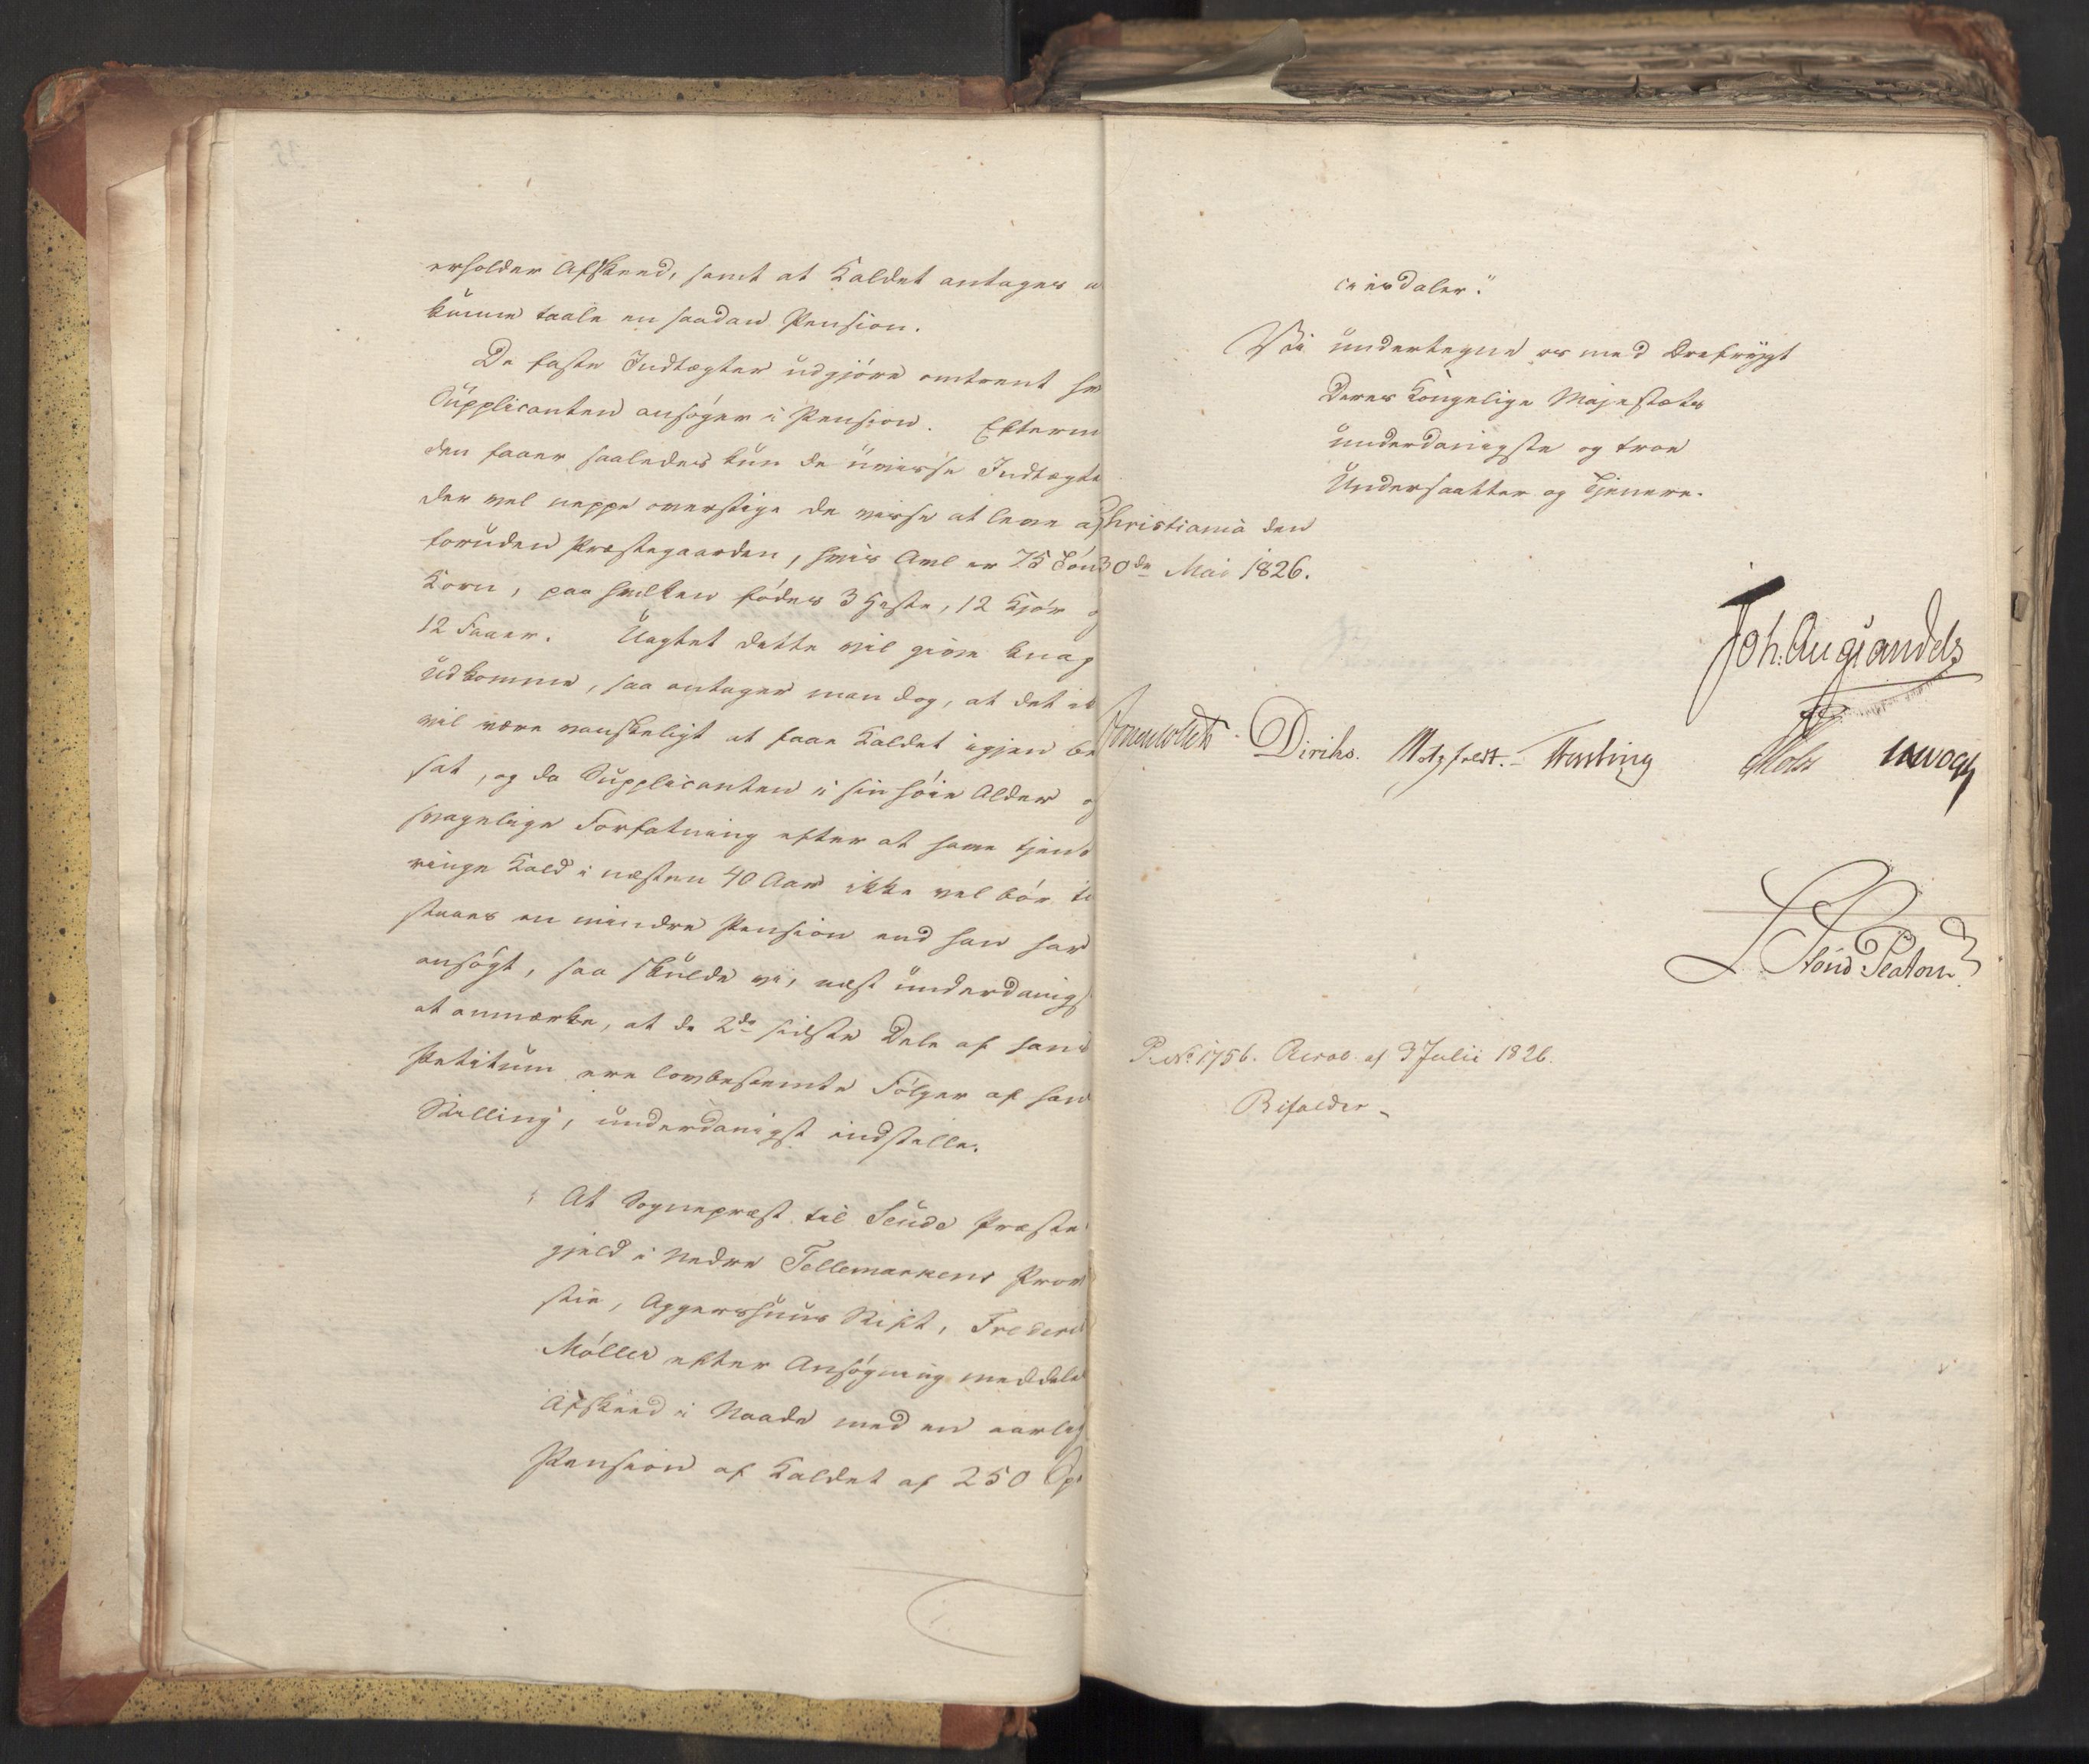 erholder Afskeed, samt at Kaldet antages a
kunne taale en saadan Pension.
De faste Indtægter udgjøre omtrent hv
Supplicanten ansøger i Pension. Efterm
den faaer saaledes kun de uvisse Indtægte
der vel neppe overstige de visse at leve af
foruden Præstegaarden, hvis Avl er 75 Tønd
Korn, paa hvilken fødes 3 Heste, 12 Kjør og
12 Faaer. Uagtet dette vil give knap
Udkomme, saa antager man dog, at det ik
vil være vanskeligt at faae Kaldet igjen be
sat, og da Supplicanten i sin høie Alder og
svagelige Forfatning efter at have tjent
ringe Kald i næsten 40 Aar ikke vel bør ti
staaes en mindre Pension end han har
ansøgt, saa skulde vi, næst underdanigst
at anmærke, at de 2de sidste Dele af hans
Petitum ere lovbestemte Følger af hans
Stilling, underdanigst indstille.
At Sognepræst til Seude Præste
gjeld i Nedre Tellemarkens Prov
stie, Aggershuus Stift, Frederik
Møller efter Ansøgning meddeles
Afskeed i Naade med en aarlig
Pension af Kaldet af 250 Spe
ciesdaler."
Vi undertegne os med Ærefrygt
Deres Kongelige Majestæts
underdanigste og troe
Undersaatter og Tjenere.
Christiania den
30de Mai 1826.
Joh. Aug Sandels
Sommerhielm Diriks. Motzfeldt. Treschow
Fasting
L. Stoud Platou
P. No 1756. Resol. af 3 Julii 1826.
Bifalder